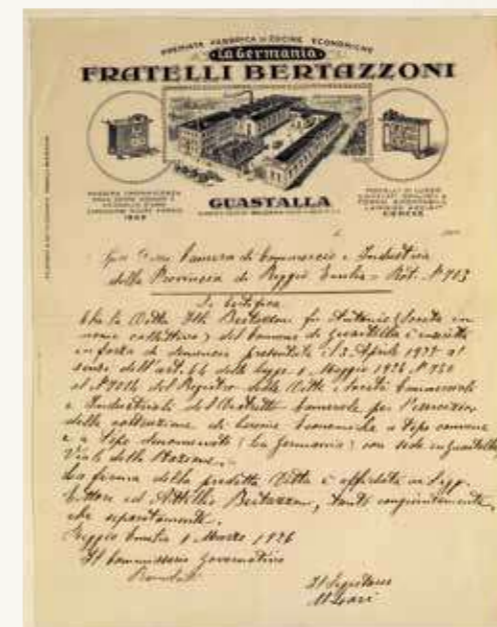 PREMIATA FABBRICA DI CUCINE ECONOMICHE
"La Germania"
FRATELLI BERTAZZONI
MASSIMA ONORIFICENZA
GRAN DIPLOMA D'ONORE E
MEDAGLIA D'ORO
1909
GUASTALLA
MODELLI DI LUSSO
Camera di Commercio e Industria
della Provincia di Reggio Emilia - Prot. N 703
Si Certifica
che la Ditta Flli Bertazzoni fu Antonio (Società in
nome collettivo) del Comune di Guastalla è inscritta
in forza di denuncia presentata il 3 Aprile al
sensi dell'art. 64 della legge Maggio N
al N del Registro delle Ditte e Società Commerciali
e Industriali del Distretto Camerale per l'esercizio
della costruzione di Cucine Economiche a tipo comune
e a tipo denominato (La Germania) con sede in Guastalla,
Viale della Stazione.
La firma della predetta Ditta è affidata ai Sigg.
Ettore ed Attilio Bertazzoni, tanto congiuntamente,
che separatamente.
Reggio Emilia Marzo 1926
Il Commissario Governativo
Il Segretario